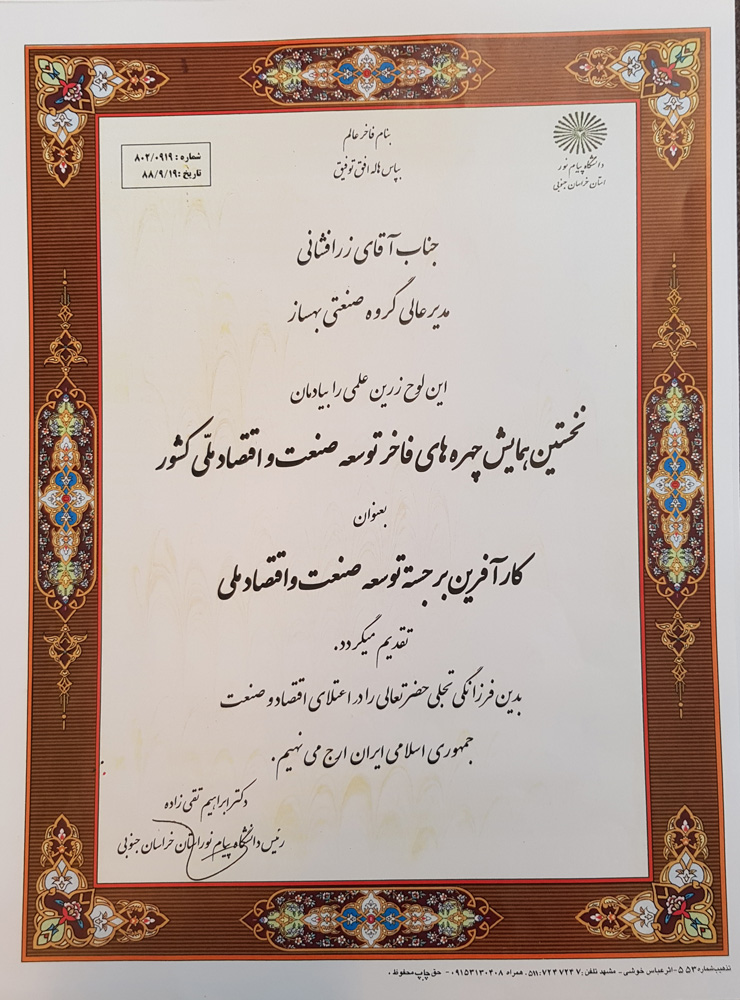 بنام فاخر عالم
بپاس هاله افق توفیق
دانشگاه پیام نور
استان خراسان جنوبی
شماره : ۸۰۲/۰۹۱۹
تاریخ : ۸۸/۹/۱۹
جناب آقای زرافشانی
مدیر عالی گروه صنعتی بهساز
این لوح زرین علمی را بیادمان
نخستین همایش چهره های فاخر توسعه صنعت و اقتصاد ملّی کشور
بعنوان
کارآفرین برجستهٔ توسعه صنعت و اقتصاد ملی
تقدیم میگردد.
بدین فرزانگی تجلی حضرتعالی را در اعتلای اقتصاد و صنعت
جمهوری اسلامی ایران ارج می نهیم.
دکتر ابراهیم تقی زاده
رئیس دانشگاه پیام نور استان خراسان جنوبی
تذهیب شماره ۵۵۳ - اثر عباس خوشی - مشهد تلفن : ۷۲۴۷۲۴۷ : ۰۵۱۱ همراه ۰۹۱۵۳۱۳۰۴۰۸ - حق چاپ محفوظ .